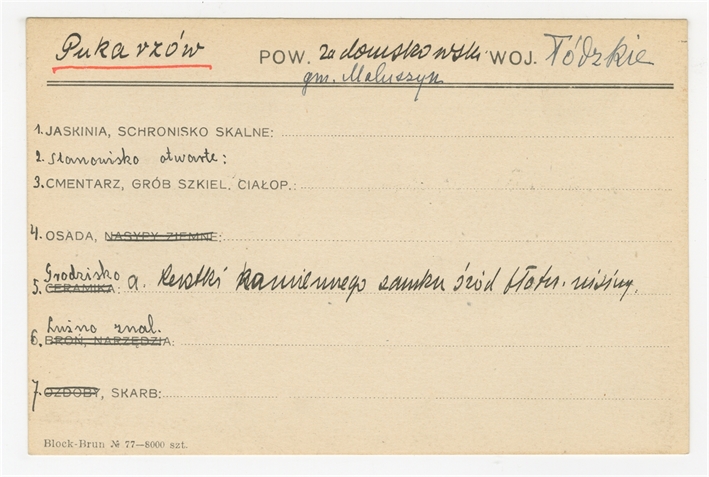 Pukarzów POW. radomskowski WOJ. Łódzkie
gm. Maluszyn
1. JASKINIA, SCHRONISKO SKALNE:
2. Stanowisko otwarte:
3. CMENTARZ, GRÓB SZKIEL. CIAŁOP.:
4. OSADA, NASYPY ZIEMNE:
Grodzisko
5. CERAMIKA: a. Resztki kamiennego zamku śród błotn. niziny.
Luźno znal.
6. BROŃ, NARZĘDZIA:
7. OZDOBY, SKARB:
Block-Brun № 77—8000 szt.